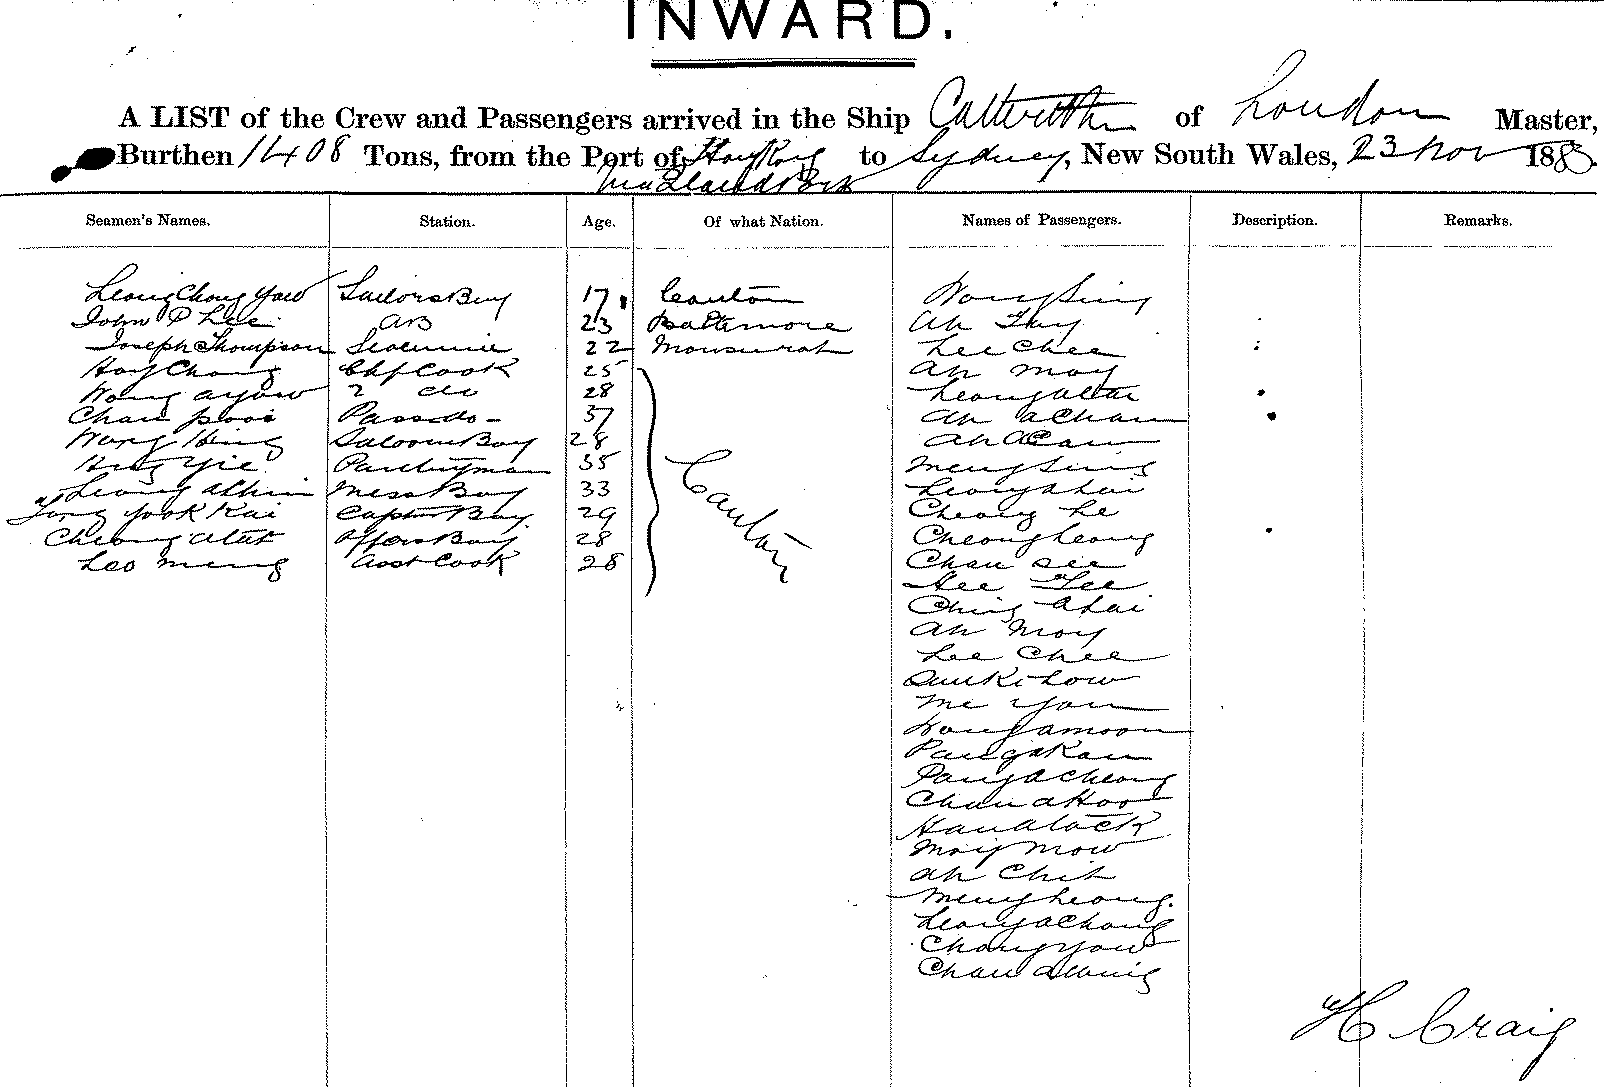 INWARD.
A LIST of the Crew and Passengers arrived in the Ship of London Master,
Burthen 1408 Tons, from the Port of Hong Kong to Sydney, New South Wales, 23 Nov 188
via
Seamen's Names. Station. Age. Of what Nation. Names of Passengers. Description. Remarks.
Leong Chong Yow Sailors Boy 17 Canton Wong Sing
John P Lee AB 23 Baltimore Ah
Joseph Thompson 22 Monserat Lee Chee
Hoy Chong Chf Cook 25 Ah Moy
Wong ayow 2 do 28
Chan Pass do 37 Ah a Chan
Wong Hing Saloon Boy 28 Ah a
Yie Pantryman 35 Meng Sing
Leong Mess Boy 33
Yook Kai Captn Boy 29 Cheong Le
Cheong Boy 28 Cheong Leong
Leo Meng Asst Cook 28 Chan See
Canton
Hee Lee
Ching
Ah Moy
Lee Chee
Low
Me You
Wong a moon
Pang a Kan
Pang a Cheong
Chan a Hoo
Moiy Mow
Ah Chit
Meng Leong.
Leong a Chong
Chong Yow
Chan
H Craig